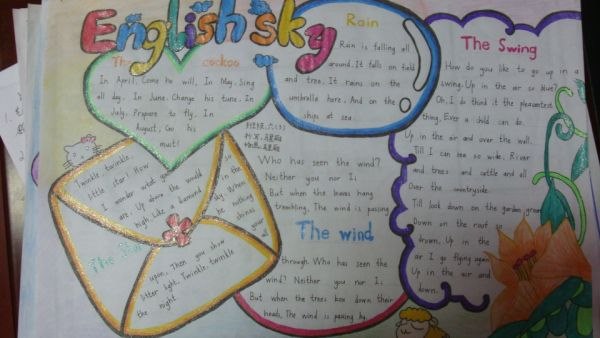 English sky
The cockoo
In April, Come he will, In May, Sing
all day, In June, Change his tune, In
July, Prepare to fly, In
August, Go his
must!
Rain
Rain is falling all
around, It falls on field
and tree, It rains on the
umbrella here, And on the
ships at sea.
The Swing
How do you like to go up in a
swing, Up in the air so blue?
Oh, I do think it the pleasantest
thing, Ever a child can do.
Up in the air and over the wall,
Till I can see wide, River
and trees and cattle and all
Over the countryside.
Till look down on the garden green
Down on the roof so
brown, Up in the
air I go flying again
Up in the air and
down.
Twinkle, twinkle,
little star! How
I wonder what you
are, Up above the would
high, Like a diamond
in the
sky. When
he nothing
shines
your
The Star
upon, Then you show
litter light, Twinkle, twinkle
the night.
Who has seen the wind?
Neither you nor I;
But when the leaves hang
trembling, The wind is passing
The wind
through. Who has seen the
wind? Neither you nor I;
But when the trees bow down their
heads, The wind is passing by.